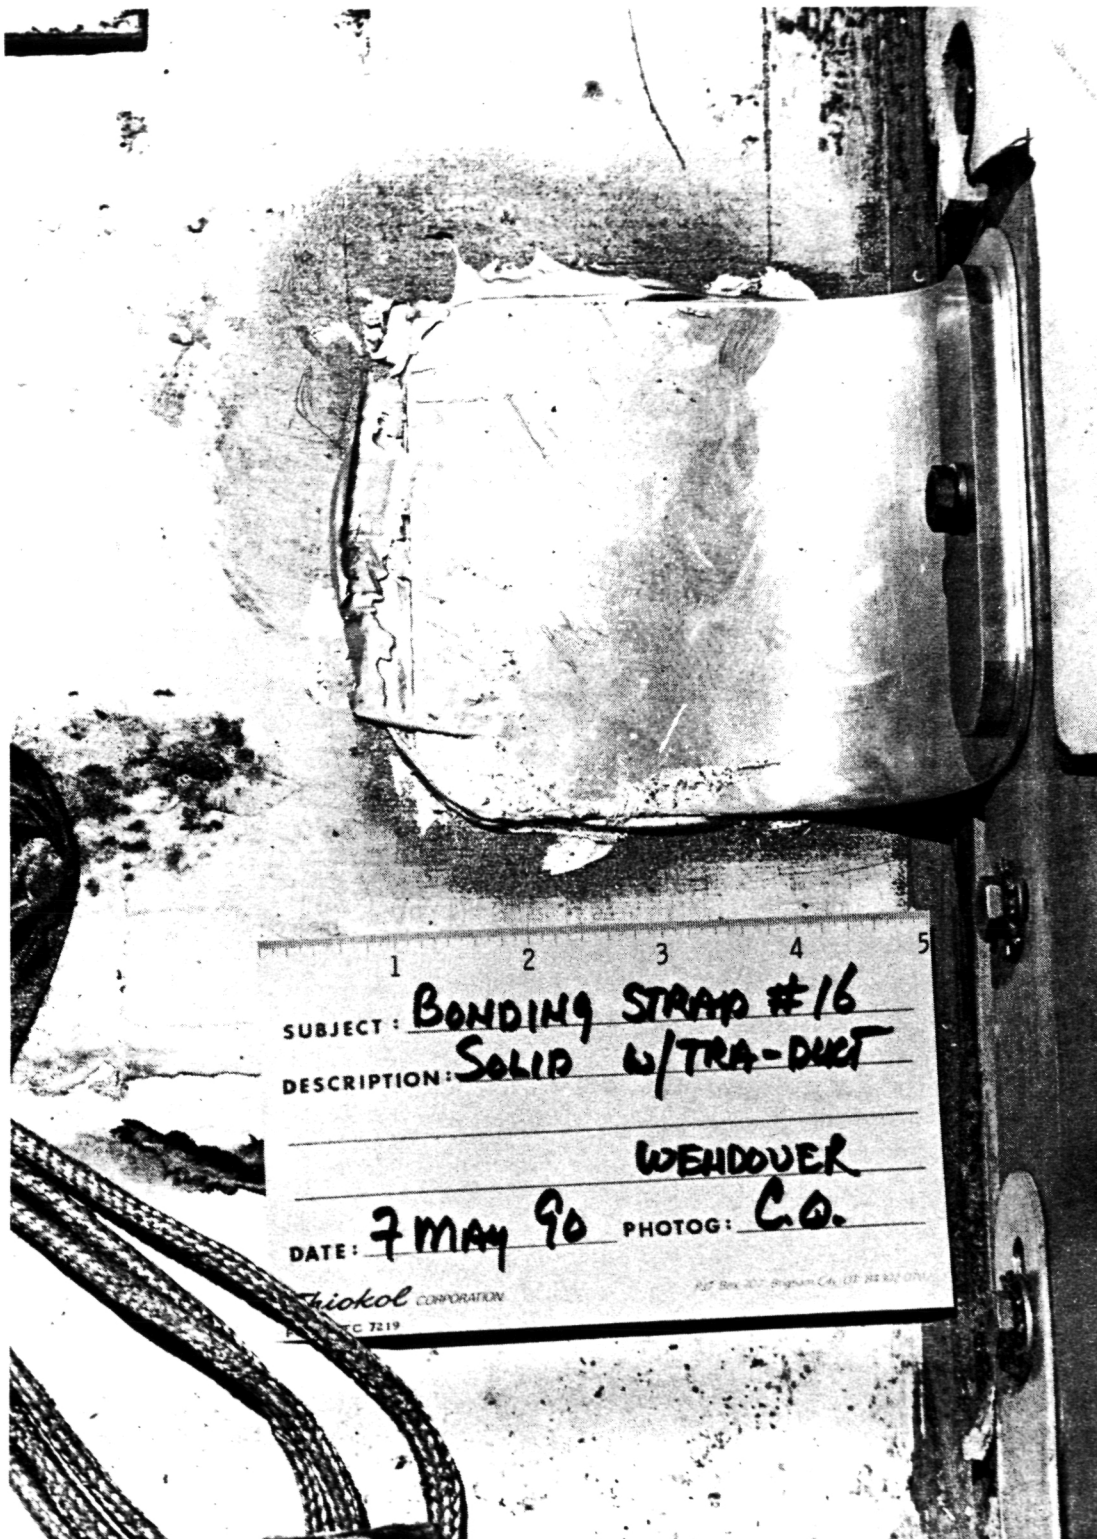 1 2 3 4 5
SUBJECT: BONDING STRAP #16
DESCRIPTION: SOLID W/TRA-DUCT
WENDOVER
DATE: 7 MAY 90 PHOTOG: C.Q.
Thiokol CORPORATION
Brigham City, UT 84302
TC 7219